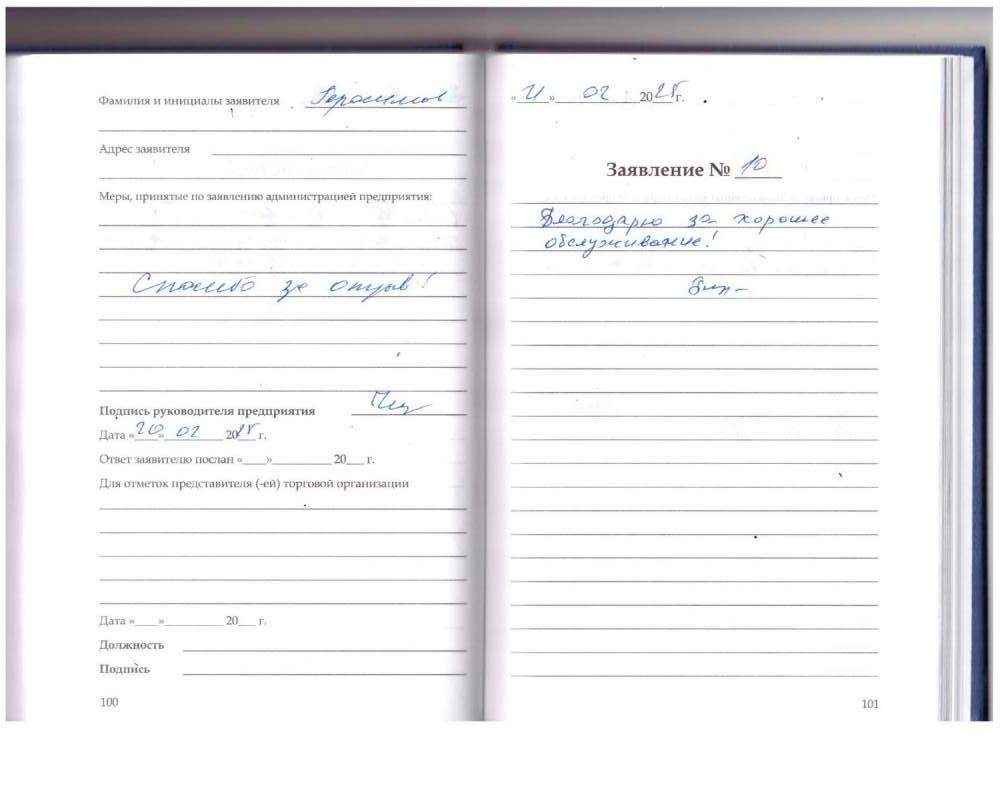 Фамилия и инициалы заявителя Герасимов
Адрес заявителя
Меры, принятые по заявлению администрацией предприятия:
Спасибо за отзыв!
Подпись руководителя предприятия
Дата «20» 02 2025 г.
Ответ заявителю послан «____»__________ 20___ г.
Для отметок представителя (-ей) торговой организации
Дата «____»__________ 20___ г.
Должность
Подпись
100
« » 02 2025 г.
Заявление № 10
Благодарю за хорошее
обслуживание!
101